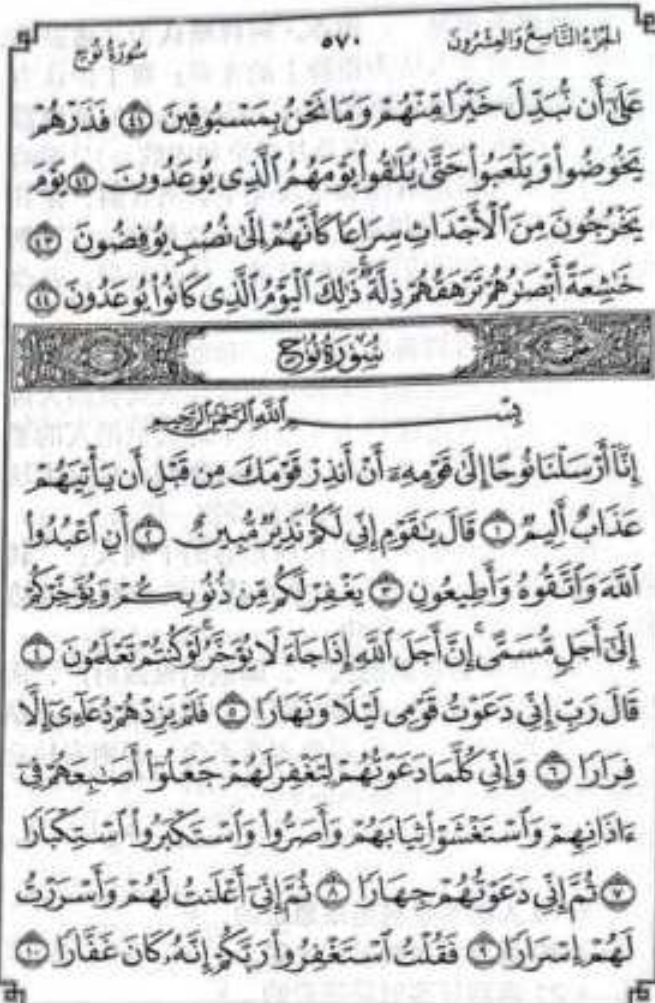 الجزء التاسع والعشرون ٥٧٠ سورة نوح
عَلَىٰٓ أَن نُّبَدِّلَ خَيْرًا مِّنْهُمْ وَمَا نَحْنُ بِمَسْبُوقِينَ ٤١ فَذَرْهُمْ
يَخُوضُوا۟ وَيَلْعَبُوا۟ حَتَّىٰ يُلَٰقُوا۟ يَوْمَهُمُ ٱلَّذِى يُوعَدُونَ ٤٢ يَوْمَ
يَخْرُجُونَ مِنَ ٱلْأَجْدَاثِ سِرَاعًا كَأَنَّهُمْ إِلَىٰ نُصُبٍ يُوفِضُونَ ٤٣
خَٰشِعَةً أَبْصَٰرُهُمْ تَرْهَقُهُمْ ذِلَّةٌ ۚ ذَٰلِكَ ٱلْيَوْمُ ٱلَّذِى كَانُوا۟ يُوعَدُونَ ٤٤
سُورَةُ نُوحٍ
بِسْمِ ٱللَّهِ ٱلرَّحْمَٰنِ ٱلرَّحِيمِ
إِنَّآ أَرْسَلْنَا نُوحًا إِلَىٰ قَوْمِهِۦٓ أَنْ أَنذِرْ قَوْمَكَ مِن قَبْلِ أَن يَأْتِيَهُمْ
عَذَابٌ أَلِيمٌ ١ قَالَ يَٰقَوْمِ إِنِّى لَكُمْ نَذِيرٌ مُّبِينٌ ٢ أَنِ ٱعْبُدُوا۟
ٱللَّهَ وَٱتَّقُوهُ وَأَطِيعُونِ ٣ يَغْفِرْ لَكُم مِّن ذُنُوبِكُمْ وَيُؤَخِّرْكُمْ
إِلَىٰٓ أَجَلٍ مُّسَمًّى ۚ إِنَّ أَجَلَ ٱللَّهِ إِذَا جَآءَ لَا يُؤَخَّرُ ۖ لَوْ كُنتُمْ تَعْلَمُونَ ٤
قَالَ رَبِّ إِنِّى دَعَوْتُ قَوْمِى لَيْلًا وَنَهَارًا ٥ فَلَمْ يَزِدْهُمْ دُعَآءِىٓ إِلَّا
فِرَارًا ٦ وَإِنِّى كُلَّمَا دَعَوْتُهُمْ لِتَغْفِرَ لَهُمْ جَعَلُوٓا۟ أَصَٰبِعَهُمْ فِىٓ
ءَاذَانِهِمْ وَٱسْتَغْشَوْا۟ ثِيَابَهُمْ وَأَصَرُّوا۟ وَٱسْتَكْبَرُوا۟ ٱسْتِكْبَارًا
٧ ثُمَّ إِنِّى دَعَوْتُهُمْ جِهَارًا ٨ ثُمَّ إِنِّىٓ أَعْلَنتُ لَهُمْ وَأَسْرَرْتُ
لَهُمْ إِسْرَارًا ٩ فَقُلْتُ ٱسْتَغْفِرُوا۟ رَبَّكُمْ إِنَّهُۥ كَانَ غَفَّارًا ١٠